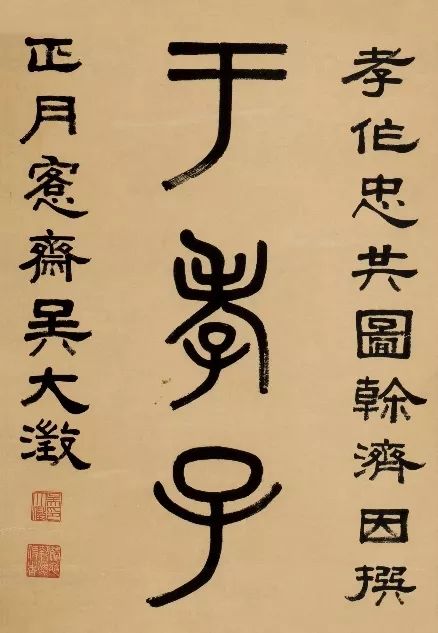 孝作忠共圖幹濟因撰
于孝子
正月愙齋吳大澂